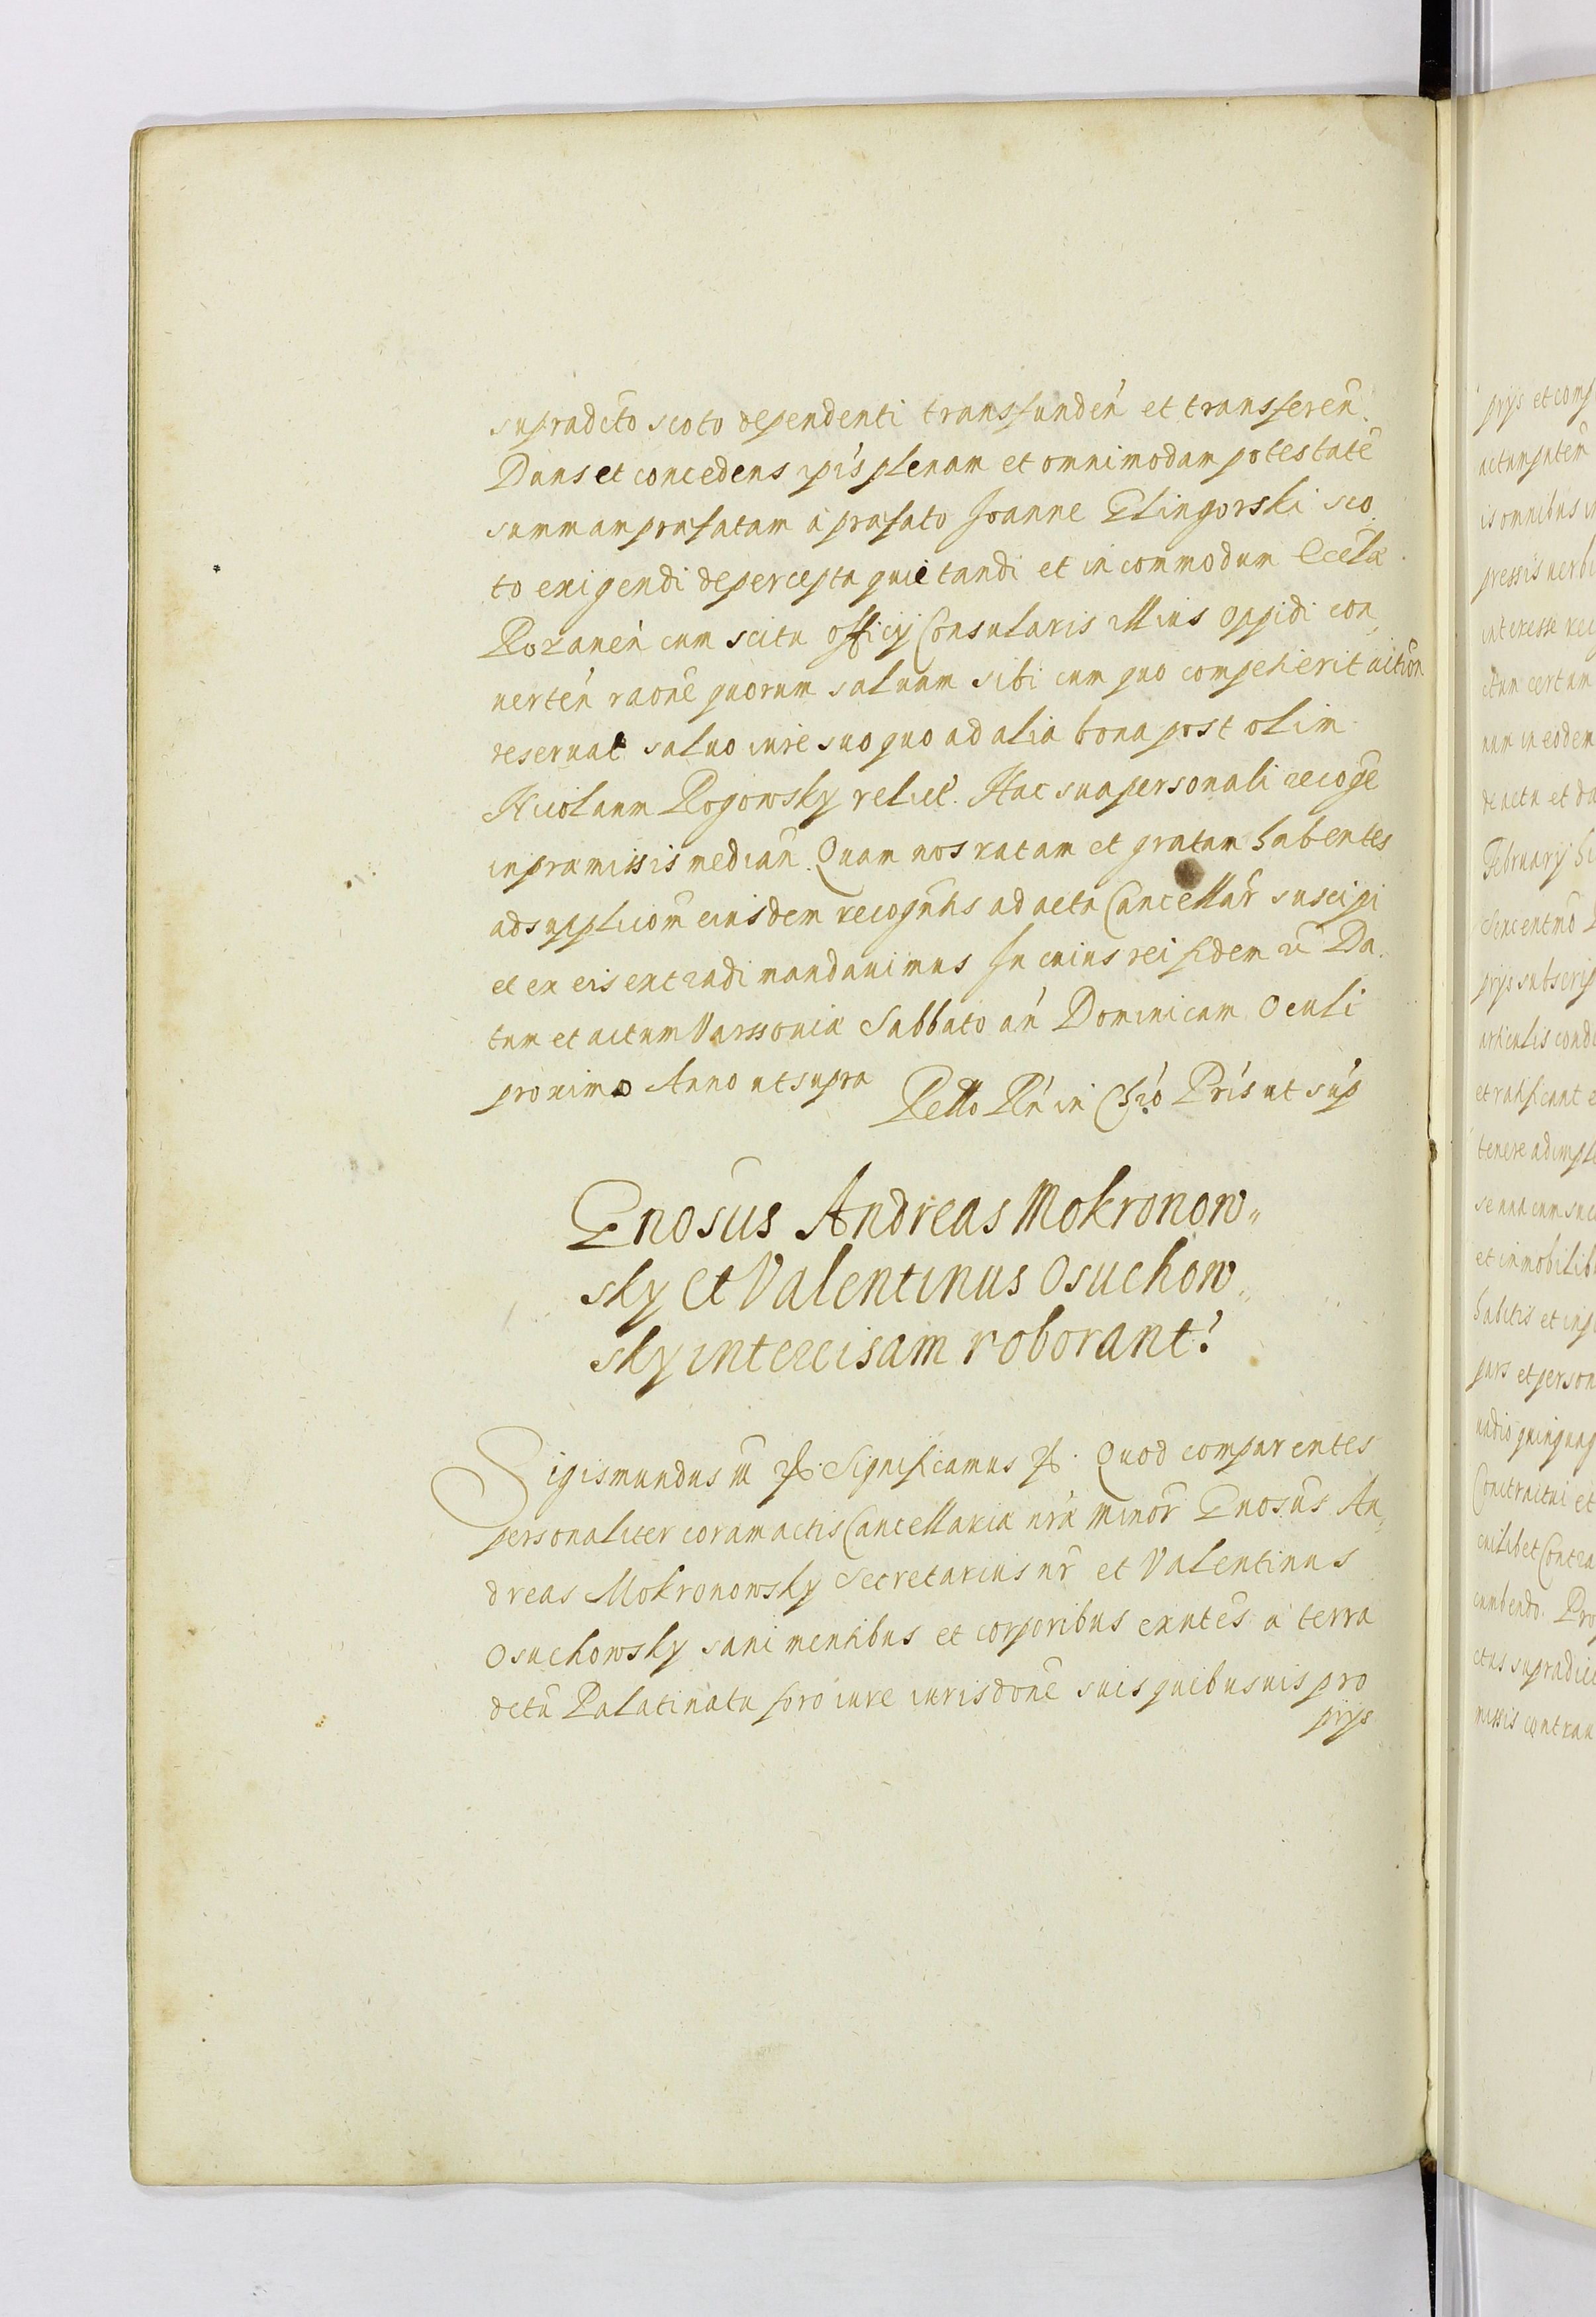 supradcto scoto dependenti transfundeń et transfereń.
Dans et concedens ipīs plenam et omnimodam potestatē
summam præfatam à præfato Joanne Elingorski sco,
to exigendi de percepta quietandi et in commodum Eccłæ
Rozaneń cum scitu officij Consularis illius oppidi con,
uerteń raone quorum saluam sibi cum quo competierit action
reseruat saluo iure suo quo ad alia bona post olim
Nicolaum Rogowsky relict. Hac sua personali recoge
in præmissis median. Quam nos ratam et gratam habentes
ad supplicom eiusdem recogntis ad acta Cancellar suscipi
et ex eis extradi mandauimus In cuius rei fidem etc Da,
tum et actum Varssouiæ Sabbato añ Dominicam Oculi
proximo Anno ut supra
Rełło Rń in Chro Pris ut sup
Gnosus Andreas Mokronow,,
sky et Valentinus Osuchow,,
sky intercisam roborant.
Sigismundus III etc. Significamus etc. Quod comparentes
personaliter coram actis Cancellariæ nræ minor Gnosus An,
dreas Mokronowsky Secretarius nr et Valentinus
Osuchowsky sani mentibus et corporibus exntes à terra
dctu Palatinatu foro iure iurisdone suis quibusuis pro
prijs
prijs et comp
actum patem
is omnibus in
pressis uerbi
interesse
ctum certum
num in eodem
de actu et da
February
prijs subscrip
articulis condi
et ratificant e
tenere adimple
se una cum suc
et inmobilib
habitis et
pars et person
uadio quinquag
Contractui et
cuilibet Contra
cumbendo. Pro
ctus supradic
missis contrau